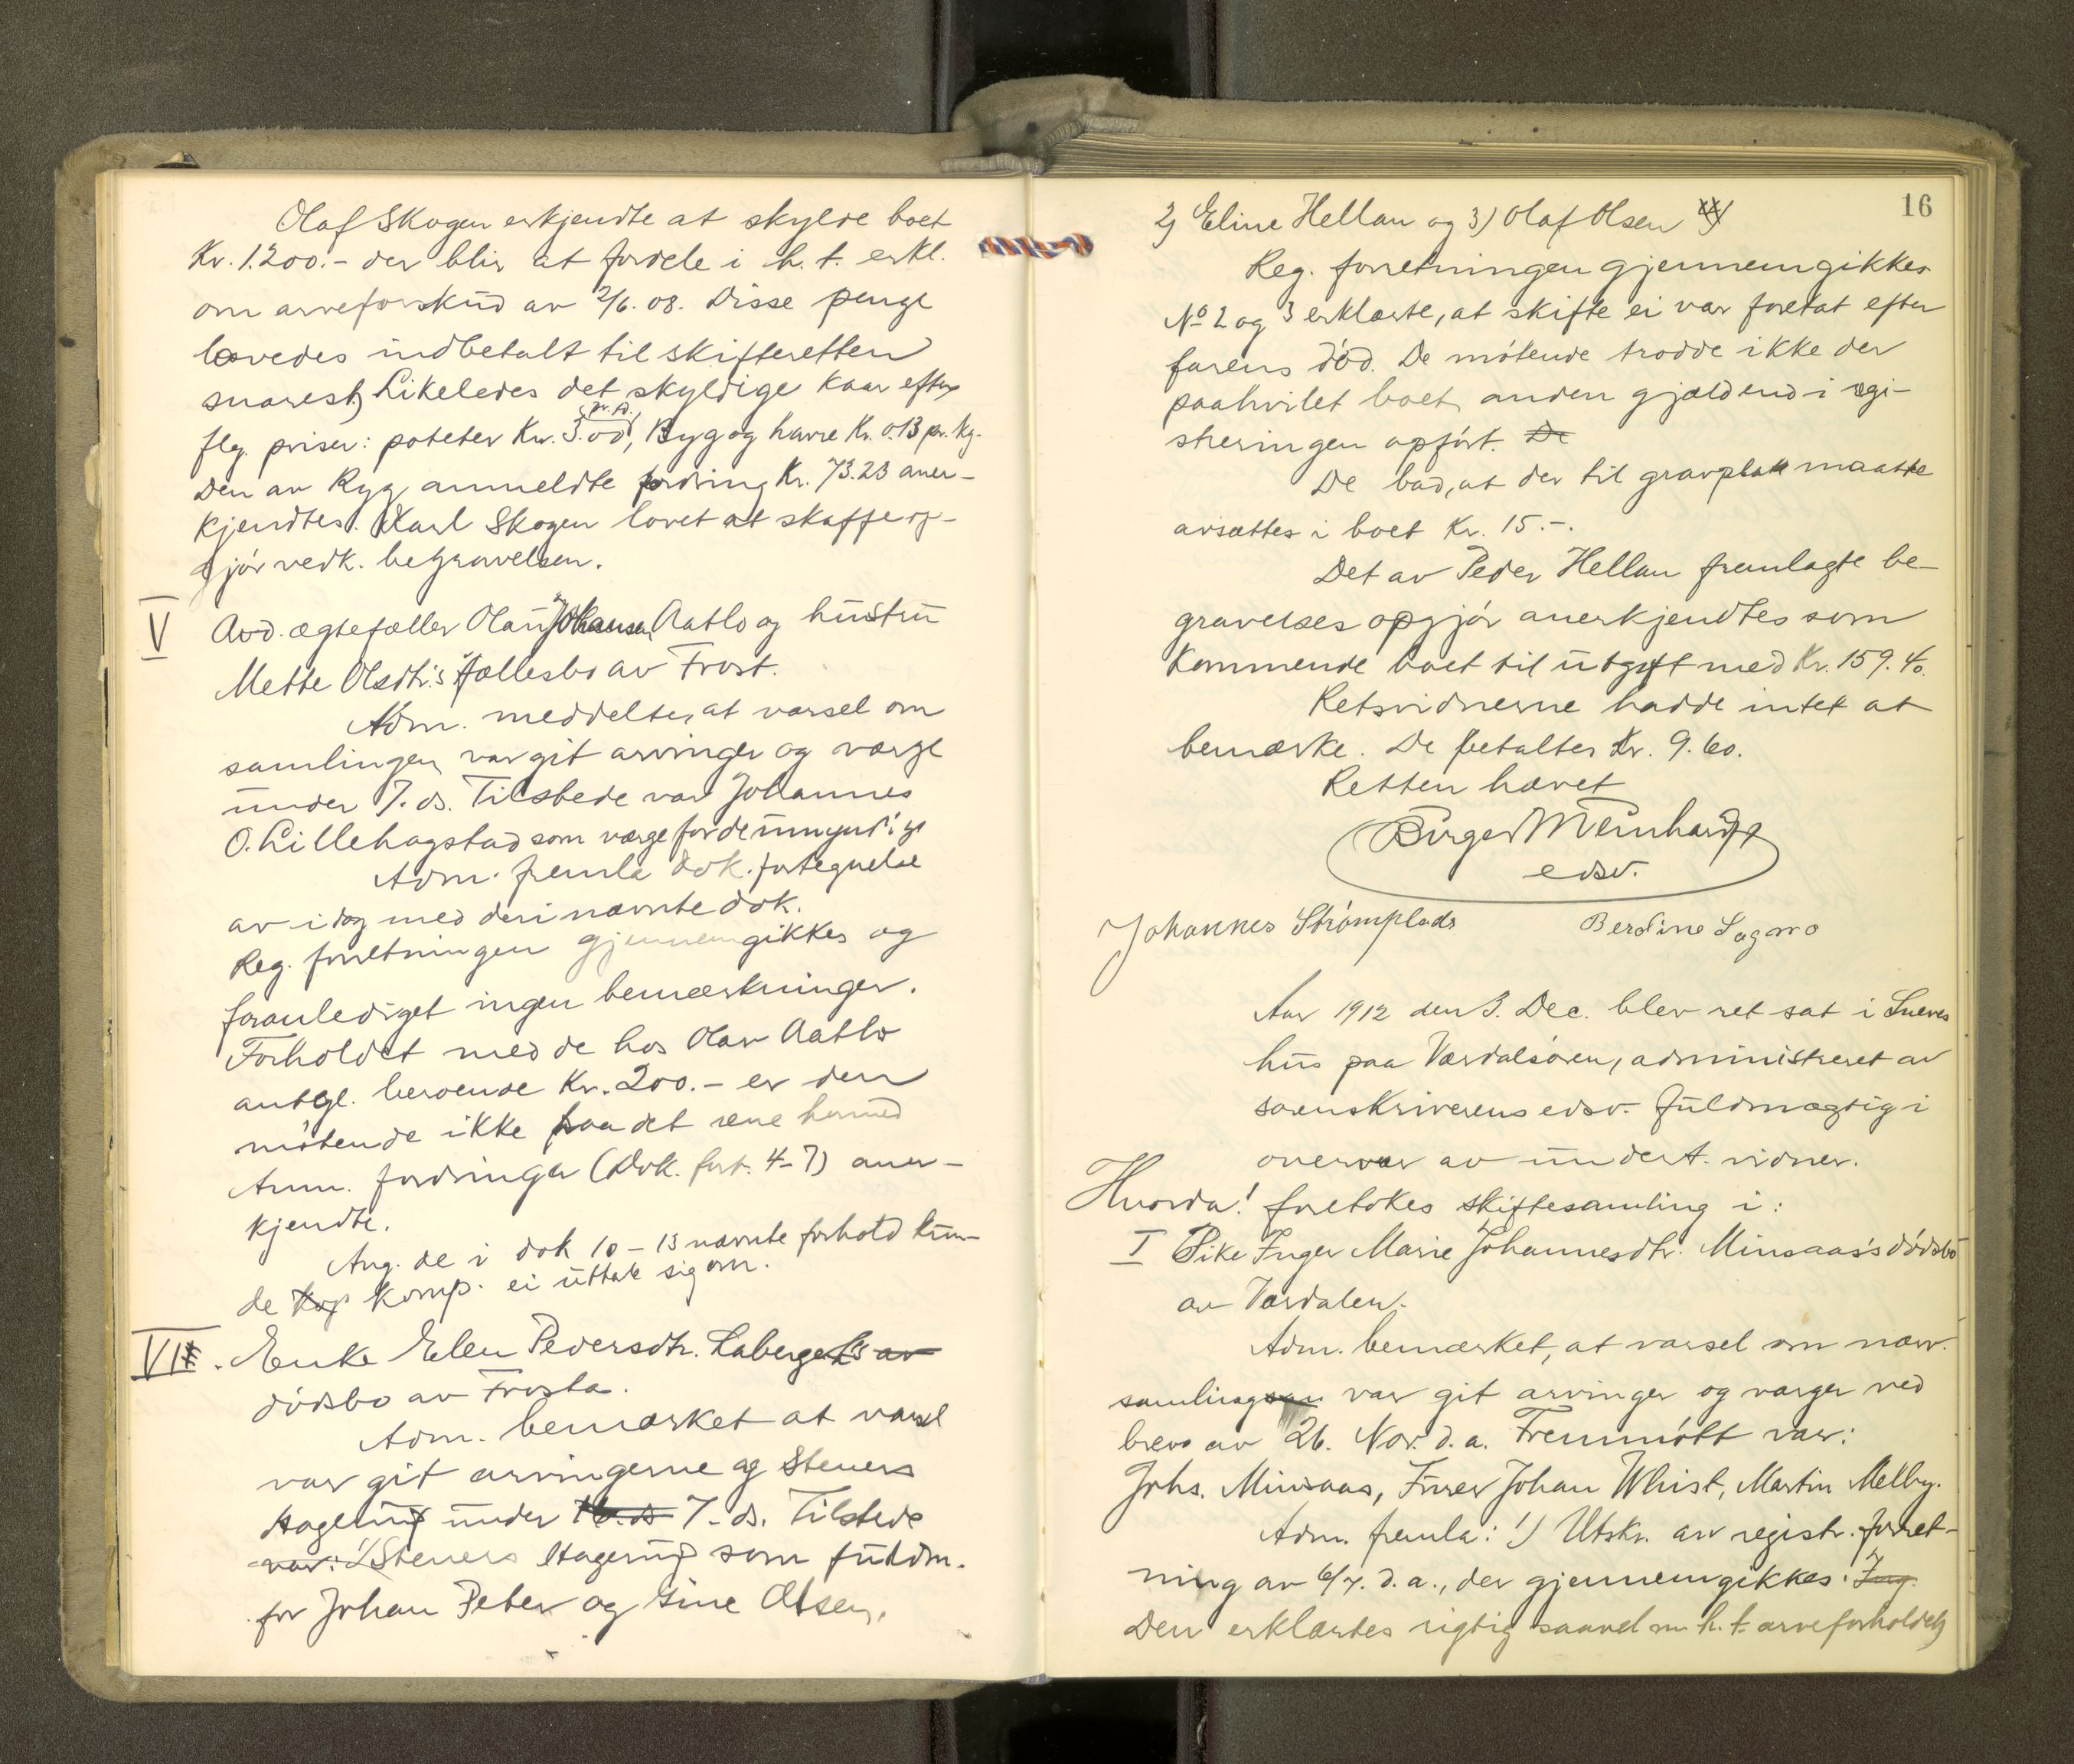 Olaf Skogen erkjendte at skylde boet
Kr. 1.200.- der blir at fordele i h. t. erkl.
om arveforskud av 2/6. 08. Disse penge
lovedes indbetalt til skifteretten
snarest, Likeledes det skyldige kaar efter
flg. priser: poteter Kr. 3.00, Byg og havre Kr. 0.13 pr. kg.
Den av Ryg anmeldte fordring Kr. 73.23 aner-
kjendtes. Karl Skogen lovet at skaffe op-
gjør vedk. begravelsen.
V Avd. ægtefæller Olaus Johansen Aatlo og hustru
Mette Olsdtr.'s fællesbo av Frost.
Adm. meddelte, at varsel om
samlingen var git arvinger og værge
under 7. ds. Tilstede var Johannes
O. Lillehagstad som værge for de umyndige
Adm. fremla dok. fortegnelse
av idag med deri nævnte dok.
Reg. forretningen gjennemgikkes og
foranlediget ingen bemærkninger.
Forholdet med de hos Olav Aatlo
antgl. beroende Kr. 200.- er den
møtende ikke paa det rene hermed
Anm. fordringer (Dok. fort. 4-7) aner-
kjendte.
Ang. de i dok 10 - 13 nævnte forhold kun-
de kop komp. ei uttale sig om.
VI. Enke Elen Pedersdtr. Laberget's av
dødsbo av Frosta.
Adm. bemærket at varsel
var git arvingerne og Steners
Hagerup under 16. ds 7. ds. Tilstede
var: 1) Steners Hagerup som fuldm.
for Johan Peter og Gine Olsen,
16
2) Eline Hellan og 3) Olaf Olsen
Reg. forretningen gjennemgikkes
No 2 og 3 erklærte, at skifte ei var foretat efter
farens død. De møtende trodde ikke der
paahvilet boet anden gjæld end i regi-
streringen opført. De
De bad, at der til gravplate maatte
avsættes i boet Kr. 15.-.
Det av Peder Hellan fremlagte be-
gravelses opgjør anerkjendtes som
kommende boet til utgift med Kr. 159.40.
Retsvidnerne hadde intet at
bemærke. De betaltes Kr. 9.60.
Retten hævet
Birger Meinhardt
edsv.
Johannes Strømplads Berdine Sagmo
Aar 1912 den 3. Dec. blev ret sat i Sneves
hus paa Værdalsøren, administreret av
sorenskriverens edsv. fuldmægtig i
overvær av undert. vidner.
Hvorda! foretokes skiftesamling i:
I Pike Inger Marie Johannesdtr. Minsaas's dødsbo
av Værdalen.
Adm. bemærket, at varsel om nærv.
samling var git arvinger og værger ved
brev av 26. Nov. d. a. Fremmøtt var:
Johs. Minsaas, Furer Johan Whist, Martin Melby.
Adm. fremla: 1) Utskr. av registr. forret-
ning av 6/7. d. a., der gjennemgikkes. Ing.
Den erklærtes rigtig saavel m. h. t. arveforholdet